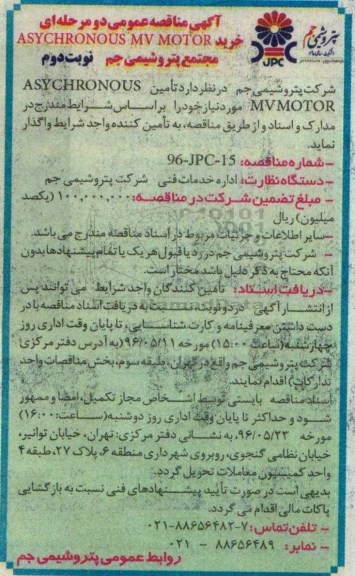 آگهی مناقصه عمومی دو مرحله ای
خرید ASYCHRONOUS MV MOTOR
مجتمع پتروشیمی جم نوبت دوم
پتروشیمی جم
JPC
شرکت پتروشیمی جم در نظر دارد تأمین ASYCHRONOUS
MVMOTOR مورد نیاز خود را براساس شرایط مندرج در
مدارک و اسناد و از طریق مناقصه، به تأمین کننده واجد شرایط واگذار
نماید.
- شماره مناقصه: 96-JPC-15
- دستگاه نظارت: اداره خدمات فنی شرکت پتروشیمی جم
- مبلغ تضمین شرکت در مناقصه: ۱۰۰,۰۰۰,۰۰۰ (یکصد
میلیون) ریال
- سایر اطلاعات و جزئیات مربوط در اسناد مناقصه مندرج می باشد.
- شرکت پتروشیمی جم در رد یا قبول هر یک یا تمام پیشنهادها بدون
آنکه محتاج به ذکر دلیل باشد مختار است.
- دریافت اسناد: تأمین کنندگان واجد شرایط می توانند پس
از انتشار آگهی در دو نوبت، نسبت به دریافت اسناد مناقصه با در
دست داشتن معرفینامه و کارت شناسایی، تا پایان وقت اداری روز
چهارشنبه (ساعت ۱۵:۰۰) مورخه ۹۶/۰۵/۱۱ (به آدرس دفتر مرکزی
شرکت پتروشیمی جم واقع در تهران، طبقه سوم، بخش مناقصات واحد
تدارکات) اقدام نمایند.
اسناد مناقصه بایستی توسط اشخاص مجاز تکمیل، امضا و ممهور
شود و حداکثر تا پایان وقت اداری روز دوشنبه (ساعت: ۱۶:۰۰)
مورخه ۹۶/۰۵/۲۳، به نشانی دفتر مرکزی: تهران، خیابان توانیر،
خیابان نظامی گنجوی، روبروی شهرداری منطقه ۶، پلاک ۲۷، طبقه ۴
واحد کمیسیون معاملات تحویل گردد.
بدیهی است در صورت تأیید پیشنهادهای فنی نسبت به بازگشایی
پاکات مالی اقدام می گردد.
- تلفن تماس: ۷-۸۸۶۵۶۴۸۲-۰۲۱
- نمابر: ۸۸۶۵۶۴۸۹ - ۰۲۱
روابط عمومی پتروشیمی جم